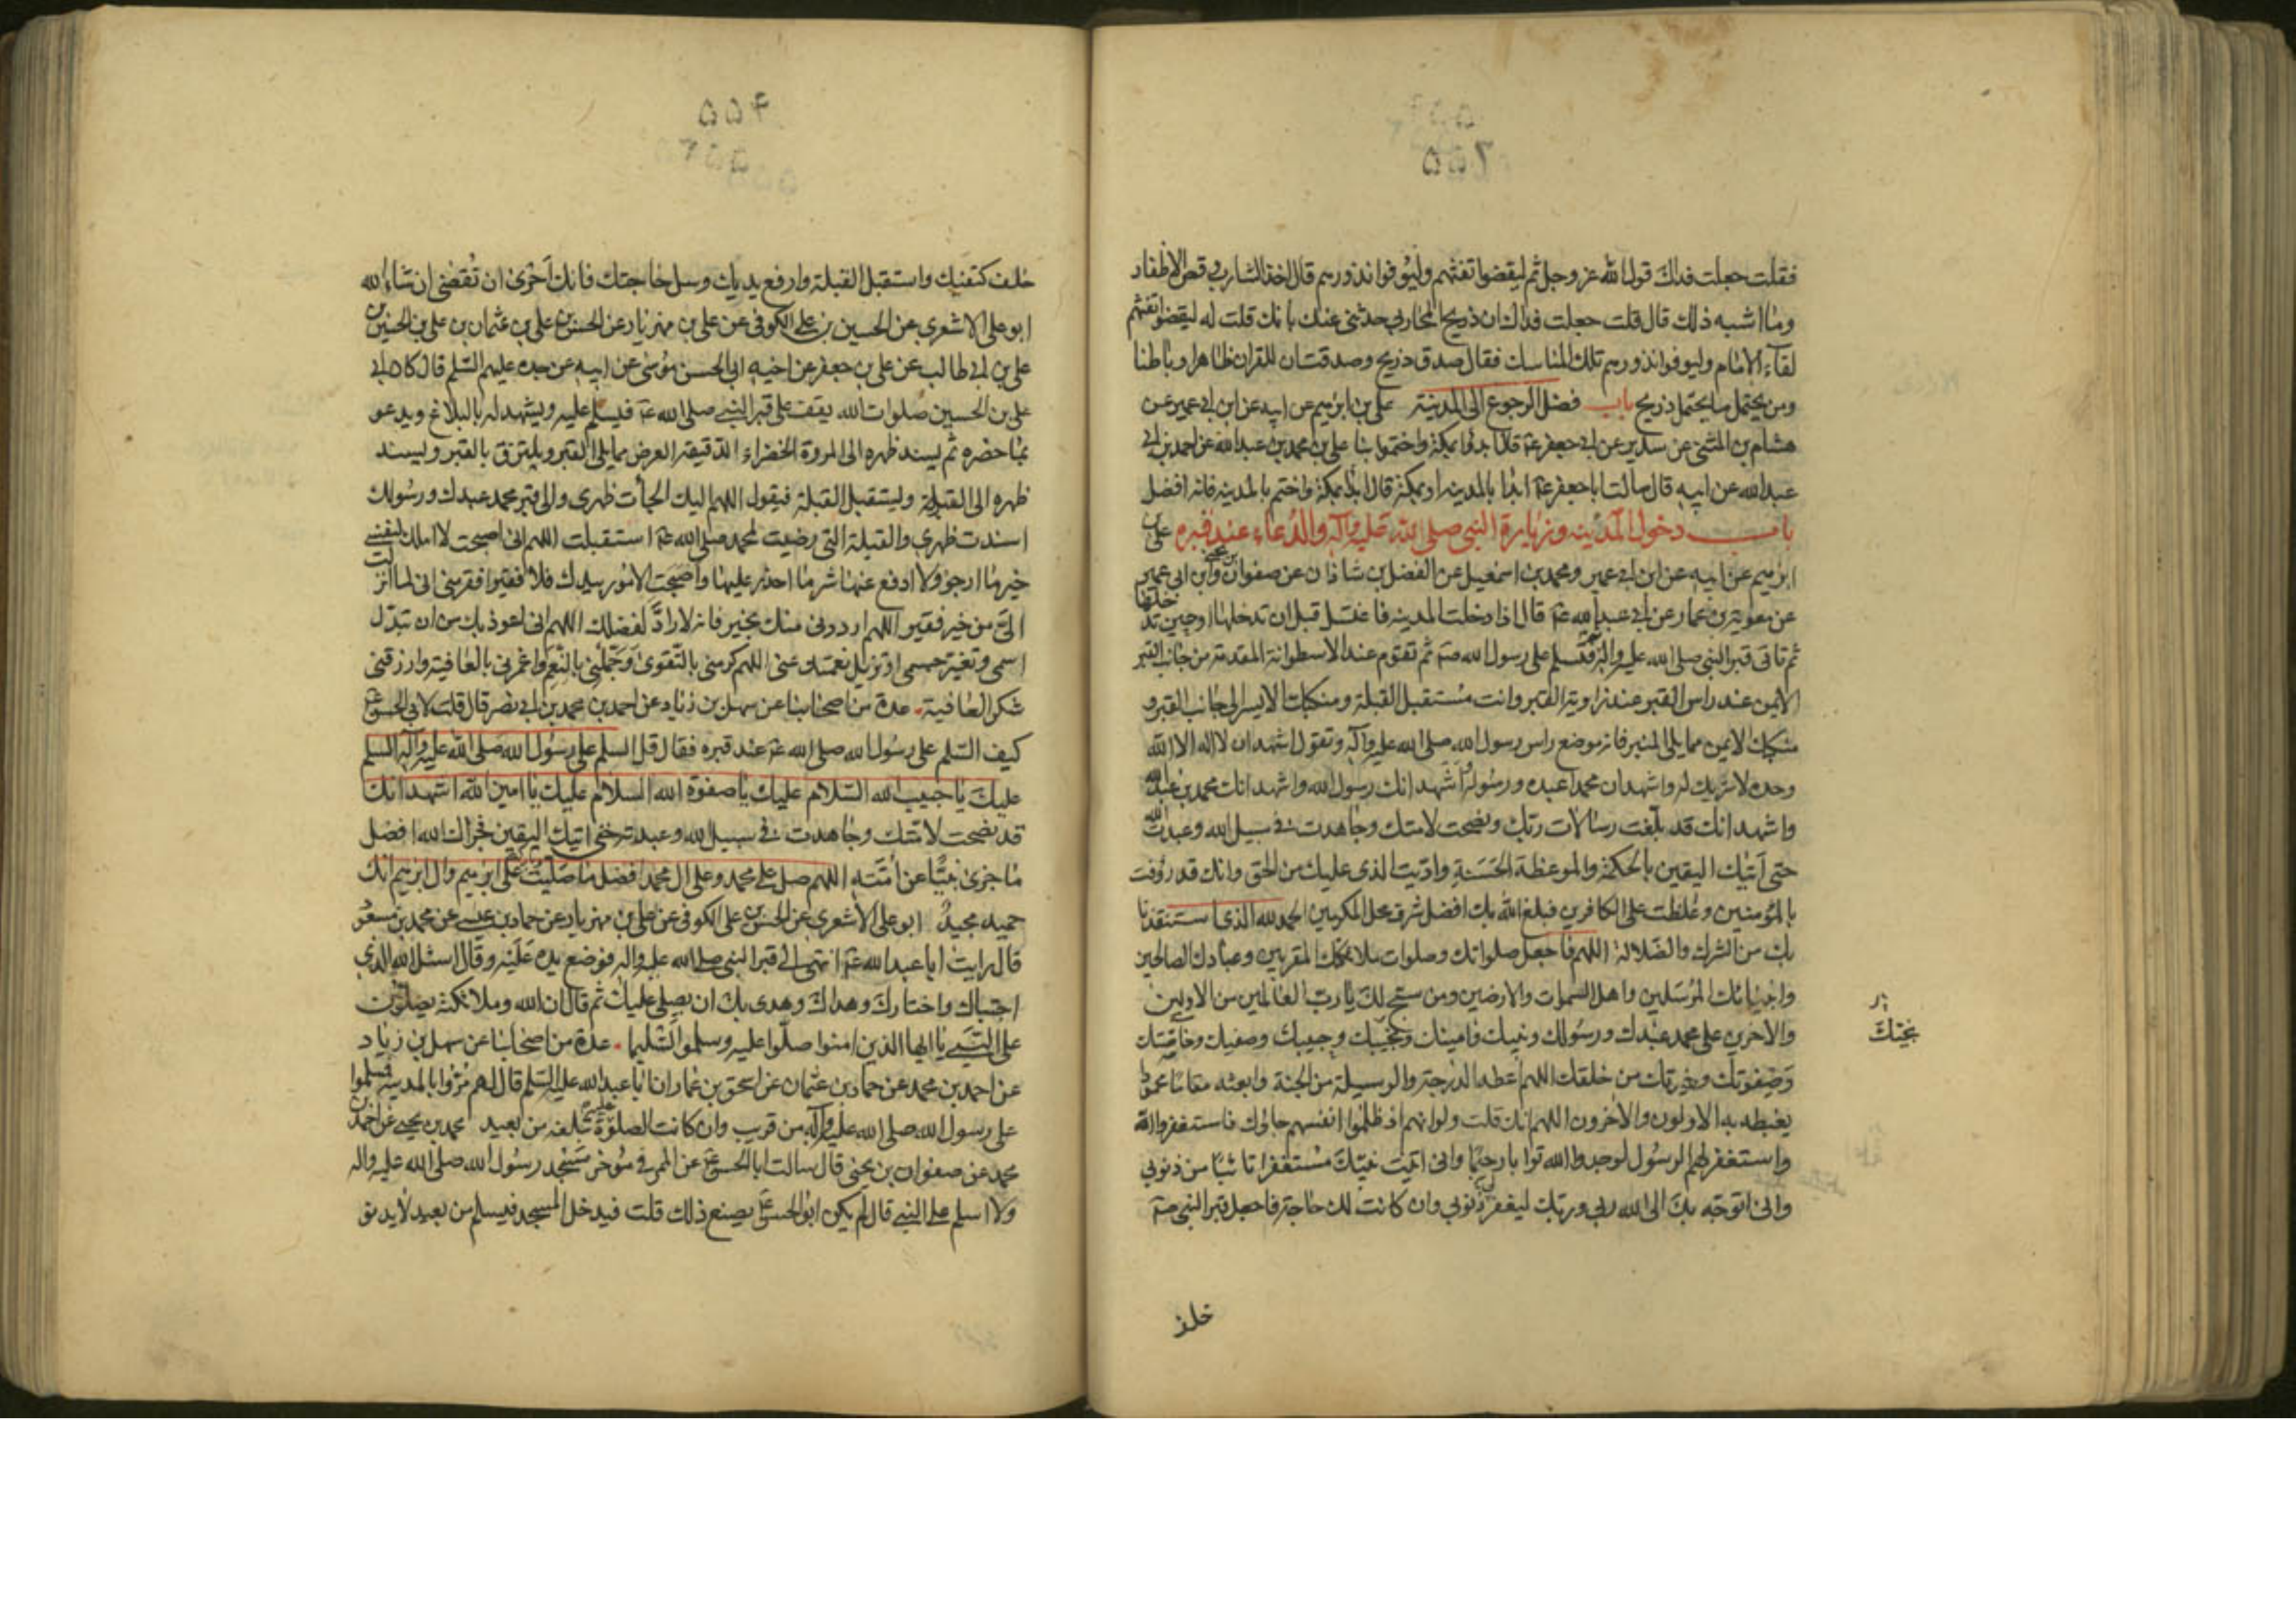 ۵۵۲
فقلت جعلت فداك قول الله عز وجل ثم ليقضوا تفثهم وليوفوا نذورهم قال اخذ الشارب وقص الاظفار
وما اشبه ذلك قال قلت جعلت فداك ان ذريح المحاربي حدثني عنك بانك قلت له ليقضوا تفثهم
لقاء الامام وليوفوا نذورهم تلك المناسك فقال صدق ذريح وصدقت ان للقران ظاهرا وباطنا
ومن يحتمل ما يحتمل ذريح باب فضل الرجوع الى المدينة علي بن ابرهيم عن ابيه عن ابن ابي عمير عن
هشام بن المثنى عن سدير عن ابي جعفر ع قال ابدؤا بمكة واختموا بنا علي بن محمد بن عبدالله عن احمد بن ابي
عبدالله عن ابيه قال سالت ابا جعفر ع ابدأ بالمدينه او بمكة قال ابدأ بمكة واختم بالمدينه فانه افضل
باب دخول المدينه وزيارة النبي صلى الله عليه وآله والدعاء عند قبره علي بن
ابرهيم عن ابيه عن ابن ابي عمير ومحمد بن اسمعيل عن الفضل بن شاذان عن صفوان وابن ابي عمير
عن معوية بن عمار عن ابي عبدالله ع قال اذا دخلت المدينه فاغتسل قبل ان تدخلها او حين تدخلها
ثم تاتي قبر النبي صلى الله عليه واله فتسلم على رسول الله ص ثم تقوم عند الاسطوانة المقدمة من جانب القبر
الايمن عند راس القبر عند زاوية القبر وانت مستقبل القبلة ومنكبك الايسر الى جانب القبر و
منكبك الايمن مما يلي المنبر فانه موضع راس رسول الله صلى الله عليه وآله وتقول اشهد ان لا اله الا الله
وحده لا شريك له واشهد ان محمدا عبده ورسوله واشهد انك رسول الله واشهد انك محمد بن عبدالله
واشهد انك قد بلغت رسالات ربك ونصحت لامتك وجاهدت في سبيل الله وعبدت الله
حتى اتيك اليقين بالحكمة والموعظة الحسنة واديت الذي عليك من الحق وانك قد رؤفت
بالمؤمنين وغلظت على الكافرين فبلغ الله بك افضل شرف محل المكرمين الحمدلله الذي استنقذنا
بك من الشرك والضلالة اللهم فاجعل صلواتك وصلوات ملائكتك المقربين وعبادك الصالحين
وانبيائك المرسلين واهل السموات والارضين ومن سبح لك يا رب العالمين من الاولين
والاخرين على محمد عبدك ورسولك ونبيك وامينك ونجيبك وحبيبك وصفيك وخاصتك
نجيك
وصفوتك وخيرتك من خلقك اللهم اعطه الدرجة والوسيلة من الجنة وابعثه مقاما محمودا
يغبطه به الاولون والاخرون اللهم انك قلت ولو انهم اذ ظلموا انفسهم جاؤك فاستغفروا الله
واستغفر لهم الرسول لوجدوا الله توابا رحيما واني اتيت نبيك مستغفرا تائبا من ذنوبي
واني اتوجه بك الى الله ربي وربك ليغفر لي ذنوبي وان كانت لك حاجة فاجعل قبر النبي ص
خلف
خلف كتفيك واستقبل القبلة وارفع يديك وسل حاجتك فانك احرى ان تقضى ان شاء الله
ابو علي الاشعري عن الحسين بن علي الكوفي عن علي بن مهزيار عن الحسن بن علي بن عثمان بن علي بن الحسين بن
علي بن ابي طالب عن علي بن جعفر عن اخيه ابي الحسن موسى عن ابيه عن جده عليهم السلم قال كان ابي
علي بن الحسين صلوات الله يقف على قبر النبي صلى الله ع فيسلم عليه ويشهد له بالبلاغ ويدعو
بما حضره ثم يسند ظهره الى المروة الخضراء الدقيقة العرض مما يلي القبر ويلتزق بالقبر ويسند
ظهره الى القبلة ويستقبل القبلة فيقول اللهم اليك الجات ظهري والى قبر محمد عبدك ورسولك
اسندت ظهري والقبلة التي رضيت لمحمد صلى الله ع استقبلت اللهم اني اصبحت لا املك لنفسي
خير ما ارجو ولا ادفع عنها شر ما احذر عليها واصبحت الامور بيدك فلا فقير افقر مني اني لما انزلت
الي من خير فقير اللهم ارددني منك بخير فانه لا راد لفضلك اللهم اني اعوذ بك من ان تبدل
اسمي وتغير جسمي او تزيل نعمتك عني اللهم كرمني بالتقوى وجملني بالنعم واغمرني بالعافية وارزقني
شكر العافية عدة من اصحابنا عن سهل بن زياد عن احمد بن محمد بن ابي نصر قال قلت لابي الحسن ع
كيف السلم على رسول الله صلى الله ع عند قبره فقال قل السلم على رسول الله صلى الله عليه وآله السلم
عليك يا حبيب الله السلام عليك يا صفوة الله السلام عليك يا امين الله اشهد انك
قد نصحت لامتك وجاهدت في سبيل الله وعبدته حتى اتيك اليقين فجزاك الله افضل
ما جزى نبيا عن امته اللهم صل على محمد وعلى ال محمد افضل ما صليت على ابرهيم وال ابرهيم انك
حميد مجيد ابو علي الاشعري عن الحسن بن علي الكوفي عن علي بن مهزيار عن حماد بن عيسى عن محمد بن مسعود
قال رايت ابا عبدالله ع انتهى الى قبر النبي صلى الله عليه واله فوضع يده عليه وقال اسئل الله الذي
اجتباك واختارك وهداك وهدى بك ان يصلي عليك ثم قال ان الله وملائكته يصلون
على النبي يا ايها الذين امنوا صلوا عليه وسلموا تسليما عدة من اصحابنا عن سهل بن زياد
عن احمد بن محمد عن حماد بن عثمان عن اسحق بن عمار ان ابا عبدالله عليه السلم قال لهم مروا بالمدينه فسلموا
على رسول الله صلى الله عليه وآله من قريب وان كانت الصلوة تبلغه من بعيد محمد بن يحيى عن احمد بن
محمد عن صفوان بن يحيى قال سالت ابا الحسن ع عن الممر في مؤخر مسجد رسول الله صلى الله عليه واله
ولا اسلم على النبي قال لم يكن ابو الحسن ع يصنع ذلك قلت فيدخل المسجد فيسلم من بعيد لا يدنو